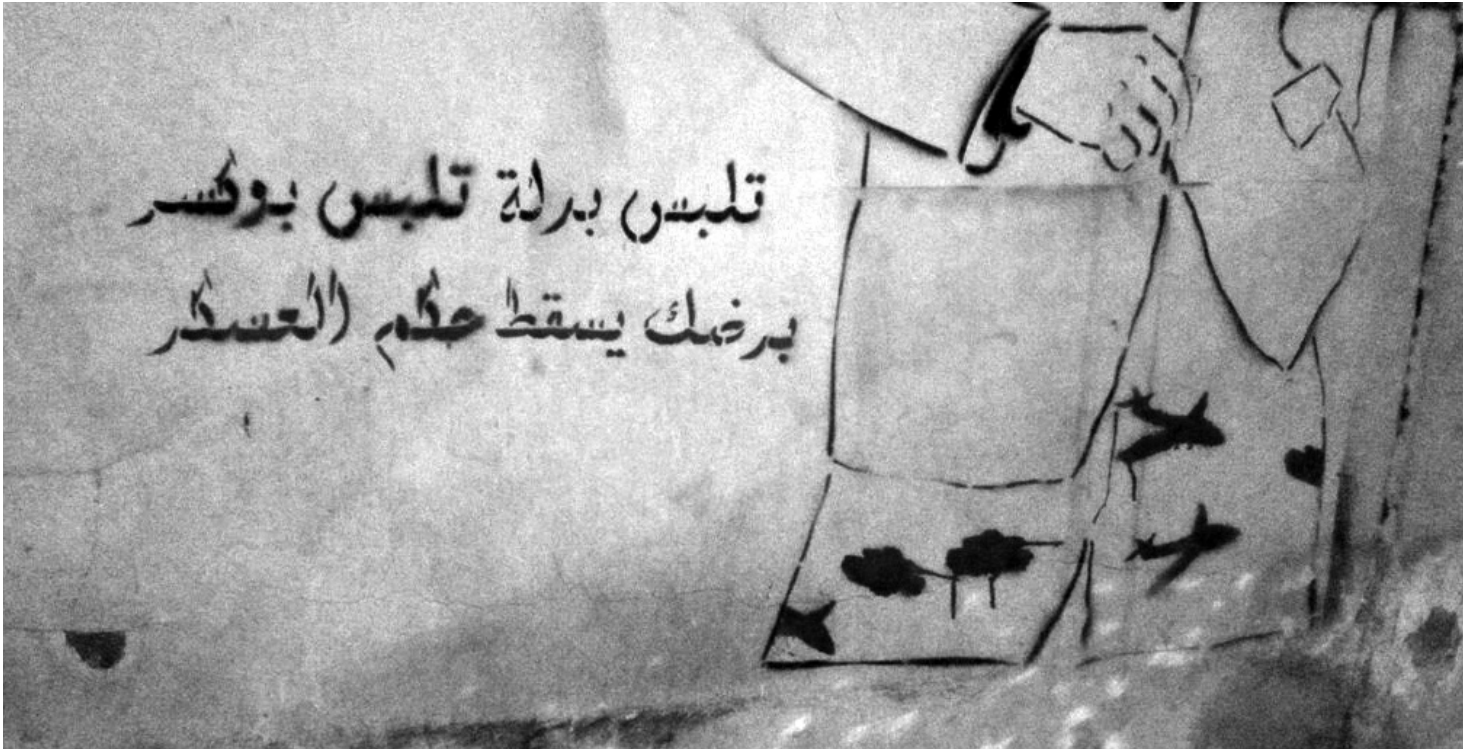 تلبس بدلة تلبس بوكسر
برضك يسقط حكم العسكر